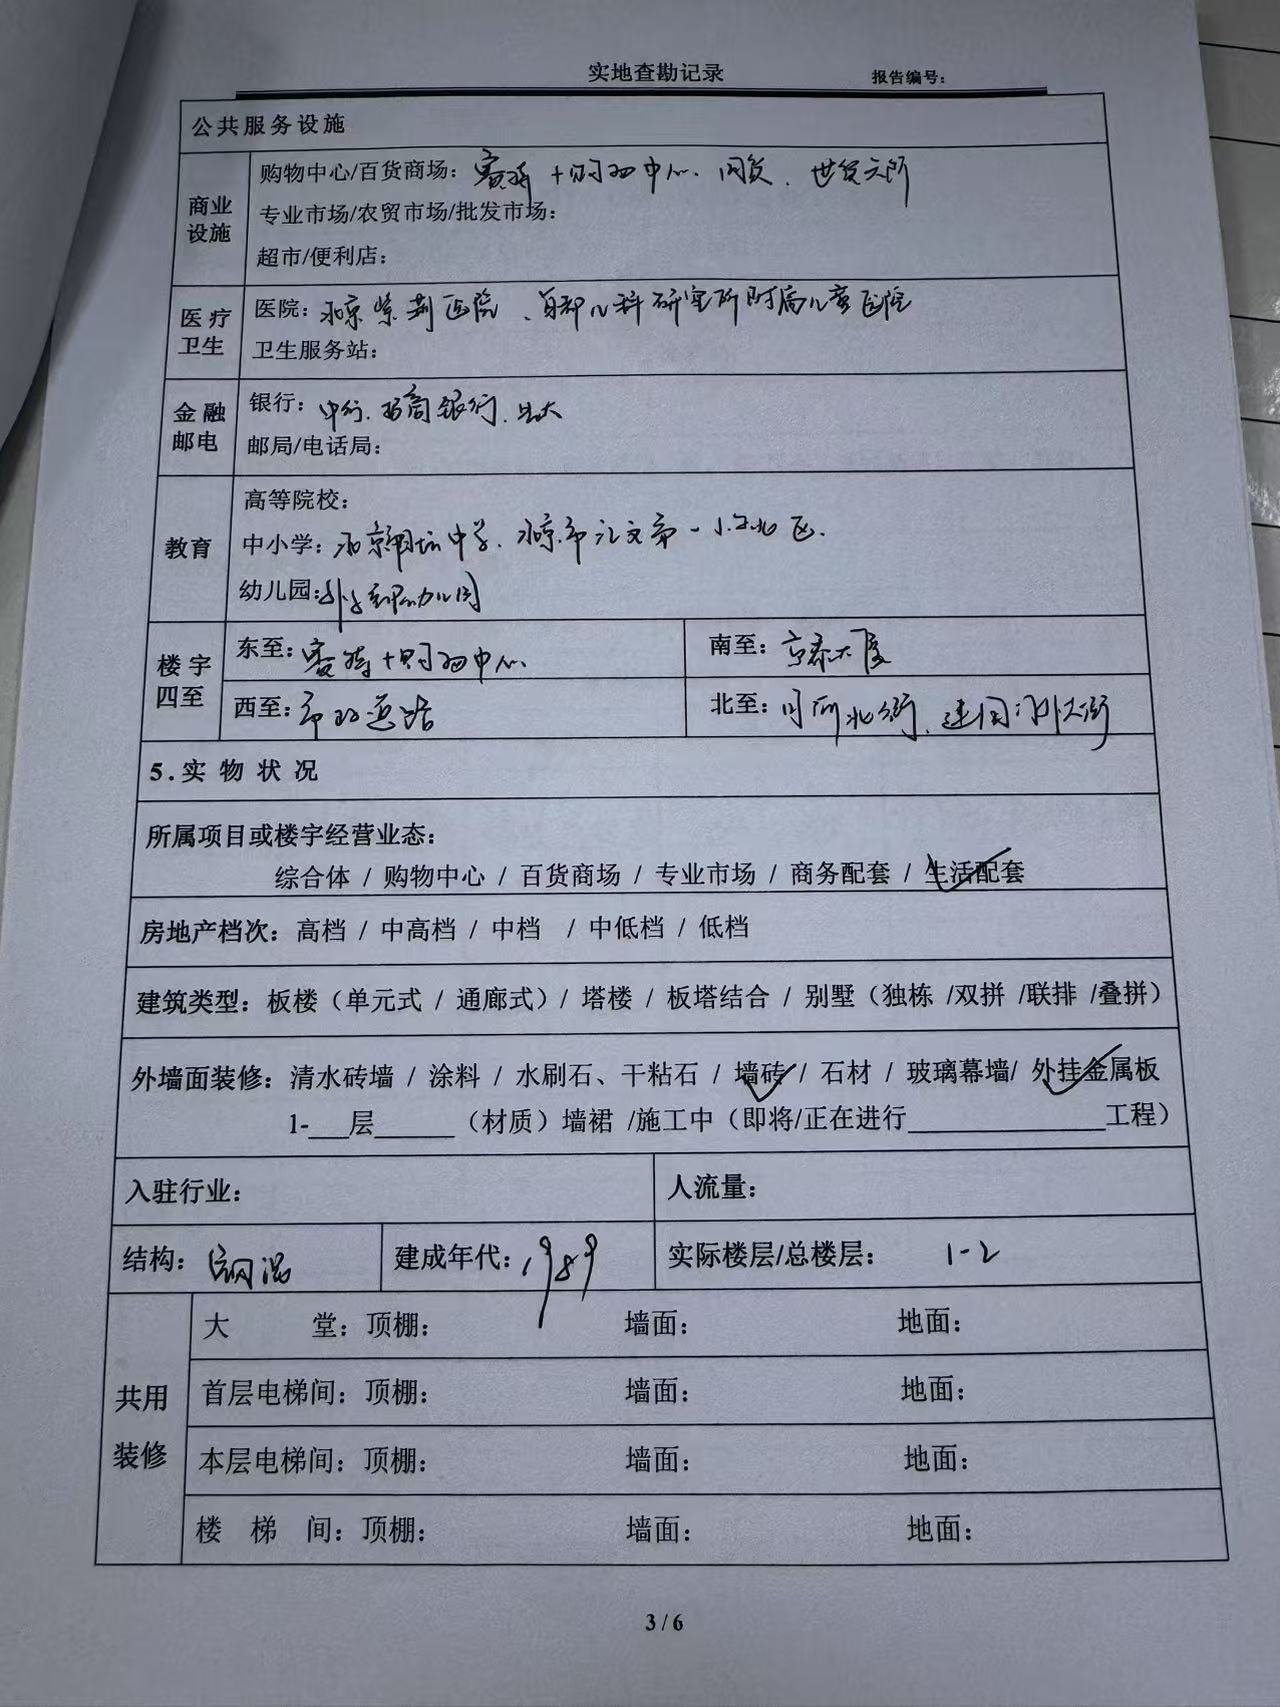 实地查勘记录 报告编号：
公共服务设施
商业设施
购物中心/百货商场：赛特购物中心、国贸、世贸天阶
专业市场/农贸市场/批发市场：
超市/便利店：
医疗卫生
医院：北京紫荆医院、首都儿科研究所附属儿童医院
卫生服务站：
金融邮电
银行：中行、招商银行、光大
邮局/电话局：
教育
高等院校：
中小学：北京明坛中学、北京市汇文第一小学北区.
幼儿园：幼儿园
楼宇四至
东至：赛特购物中心 南至：京泰大厦
西至：市政道路 北至：北街、建国门外大街
5.实物状况
所属项目或楼宇经营业态：
综合体 / 购物中心 / 百货商场 / 专业市场 / 商务配套 / 生活配套
房地产档次：高档 / 中高档 / 中档 / 中低档 / 低档
建筑类型：板楼（单元式 / 通廊式）/ 塔楼 / 板塔结合 / 别墅（独栋 /双拼 /联排 /叠拼）
外墙面装修：清水砖墙 / 涂料 / 水刷石、干粘石 / 墙砖 / 石材 / 玻璃幕墙/ 外挂金属板
1-___层______（材质）墙裙 /施工中（即将/正在进行_______________工程）
入驻行业： 人流量：
结构：钢混 建成年代：1989 实际楼层/总楼层： 1-2
共用装修
大堂：顶棚： 墙面： 地面：
首层电梯间：顶棚： 墙面： 地面：
本层电梯间：顶棚： 墙面： 地面：
楼梯间：顶棚： 墙面： 地面：
3 / 6